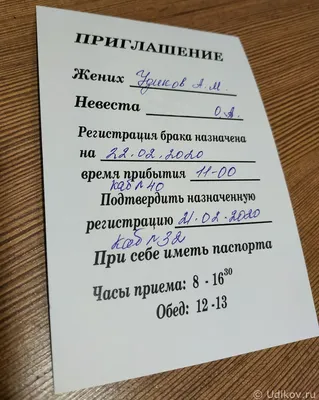 ПРИГЛАШЕНИЕ
Жених Удиков А.М.
Невеста О.А.
Регистрация брака назначена
на 22.02.2020
время прибытия 11-00
каб №40
Подтвердить назначенную
регистрацию 21.02.2020
каб №32
При себе иметь паспорта
Часы приема: 8 - 16³⁰
Обед: 12 -13
© Udikov.ru